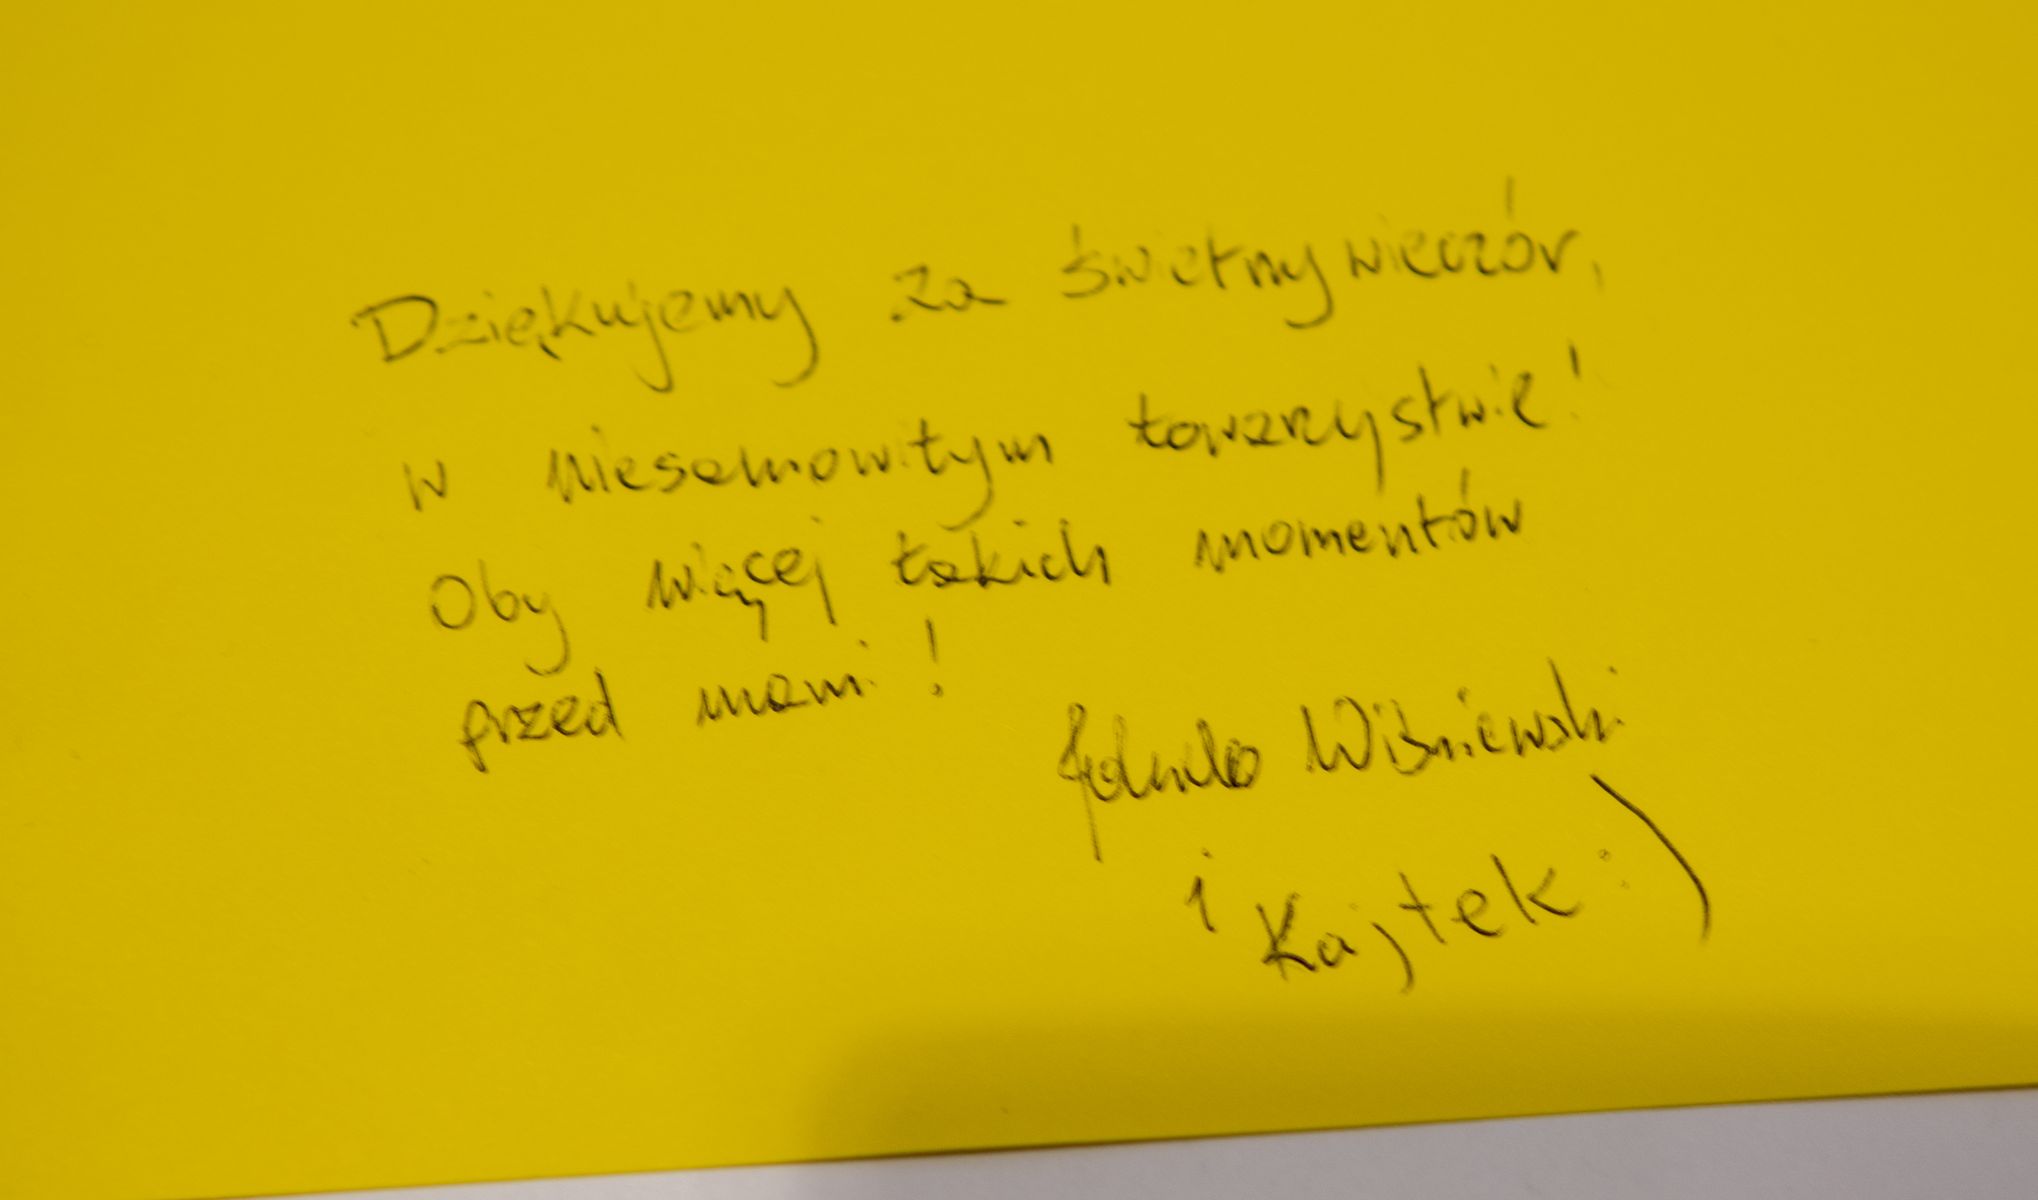 Dziękujemy za świetny wieczór,
w niesamowitym towarzystwie!
Oby więcej takich momentów
przed nami!
Wiśniewski
i Kajtek :)